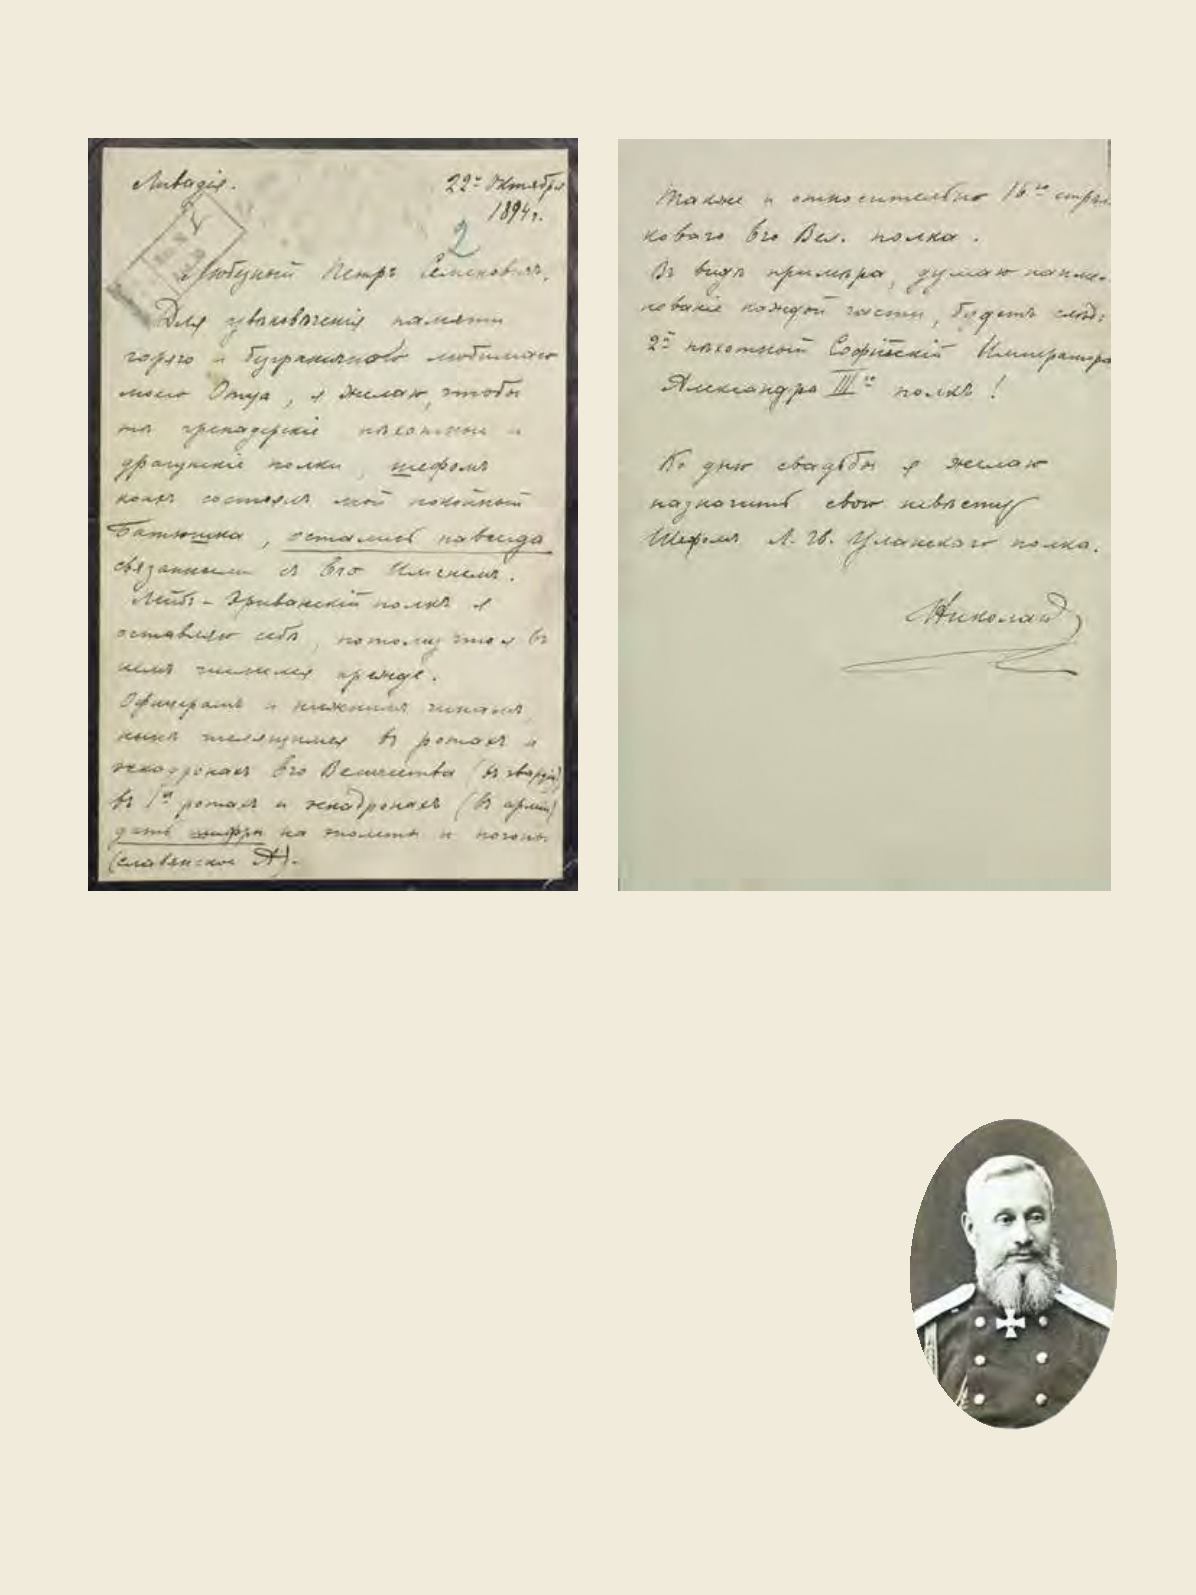 Ливадія.
22го Октября
1894 г.
2
Любезный Петръ Семеновичъ,
Для увѣковѣченія памяти
горячо и безгранично любимаго
моего Отца, я желаю, чтобы
тѣ гренадерскіе пѣхотные и
драгунскіе полки, шефомъ
коихъ состоялъ мой покойный
Батюшка, остались навсегда
связанными съ Его Именемъ.
Лейбъ-Эриванскій полкъ я
оставляю себѣ, потому что я въ
немъ числился прежде.
Офицерамъ и нижнимъ чинамъ,
нынѣ числящимся въ ротахъ и
эскадронахъ Его Величества (въ гвардіи)
въ 1хъ ротахъ и эскадронахъ (въ арміи)
дать шифры на эполеты и погоны
(славянское А).
Также и относительно 16го стрѣл-
коваго Его Вел. полка.
Въ видѣ примѣра, думаю наиме-
нованіе каждой части, будетъ слѣд:
2й пѣхотный Софійскій Императора
Александра IIIго полкъ!
Ко дню свадьбы я желаю
назначить свою невѣсту
Шефомъ Л. Гв. Уланскаго полка.
Николай